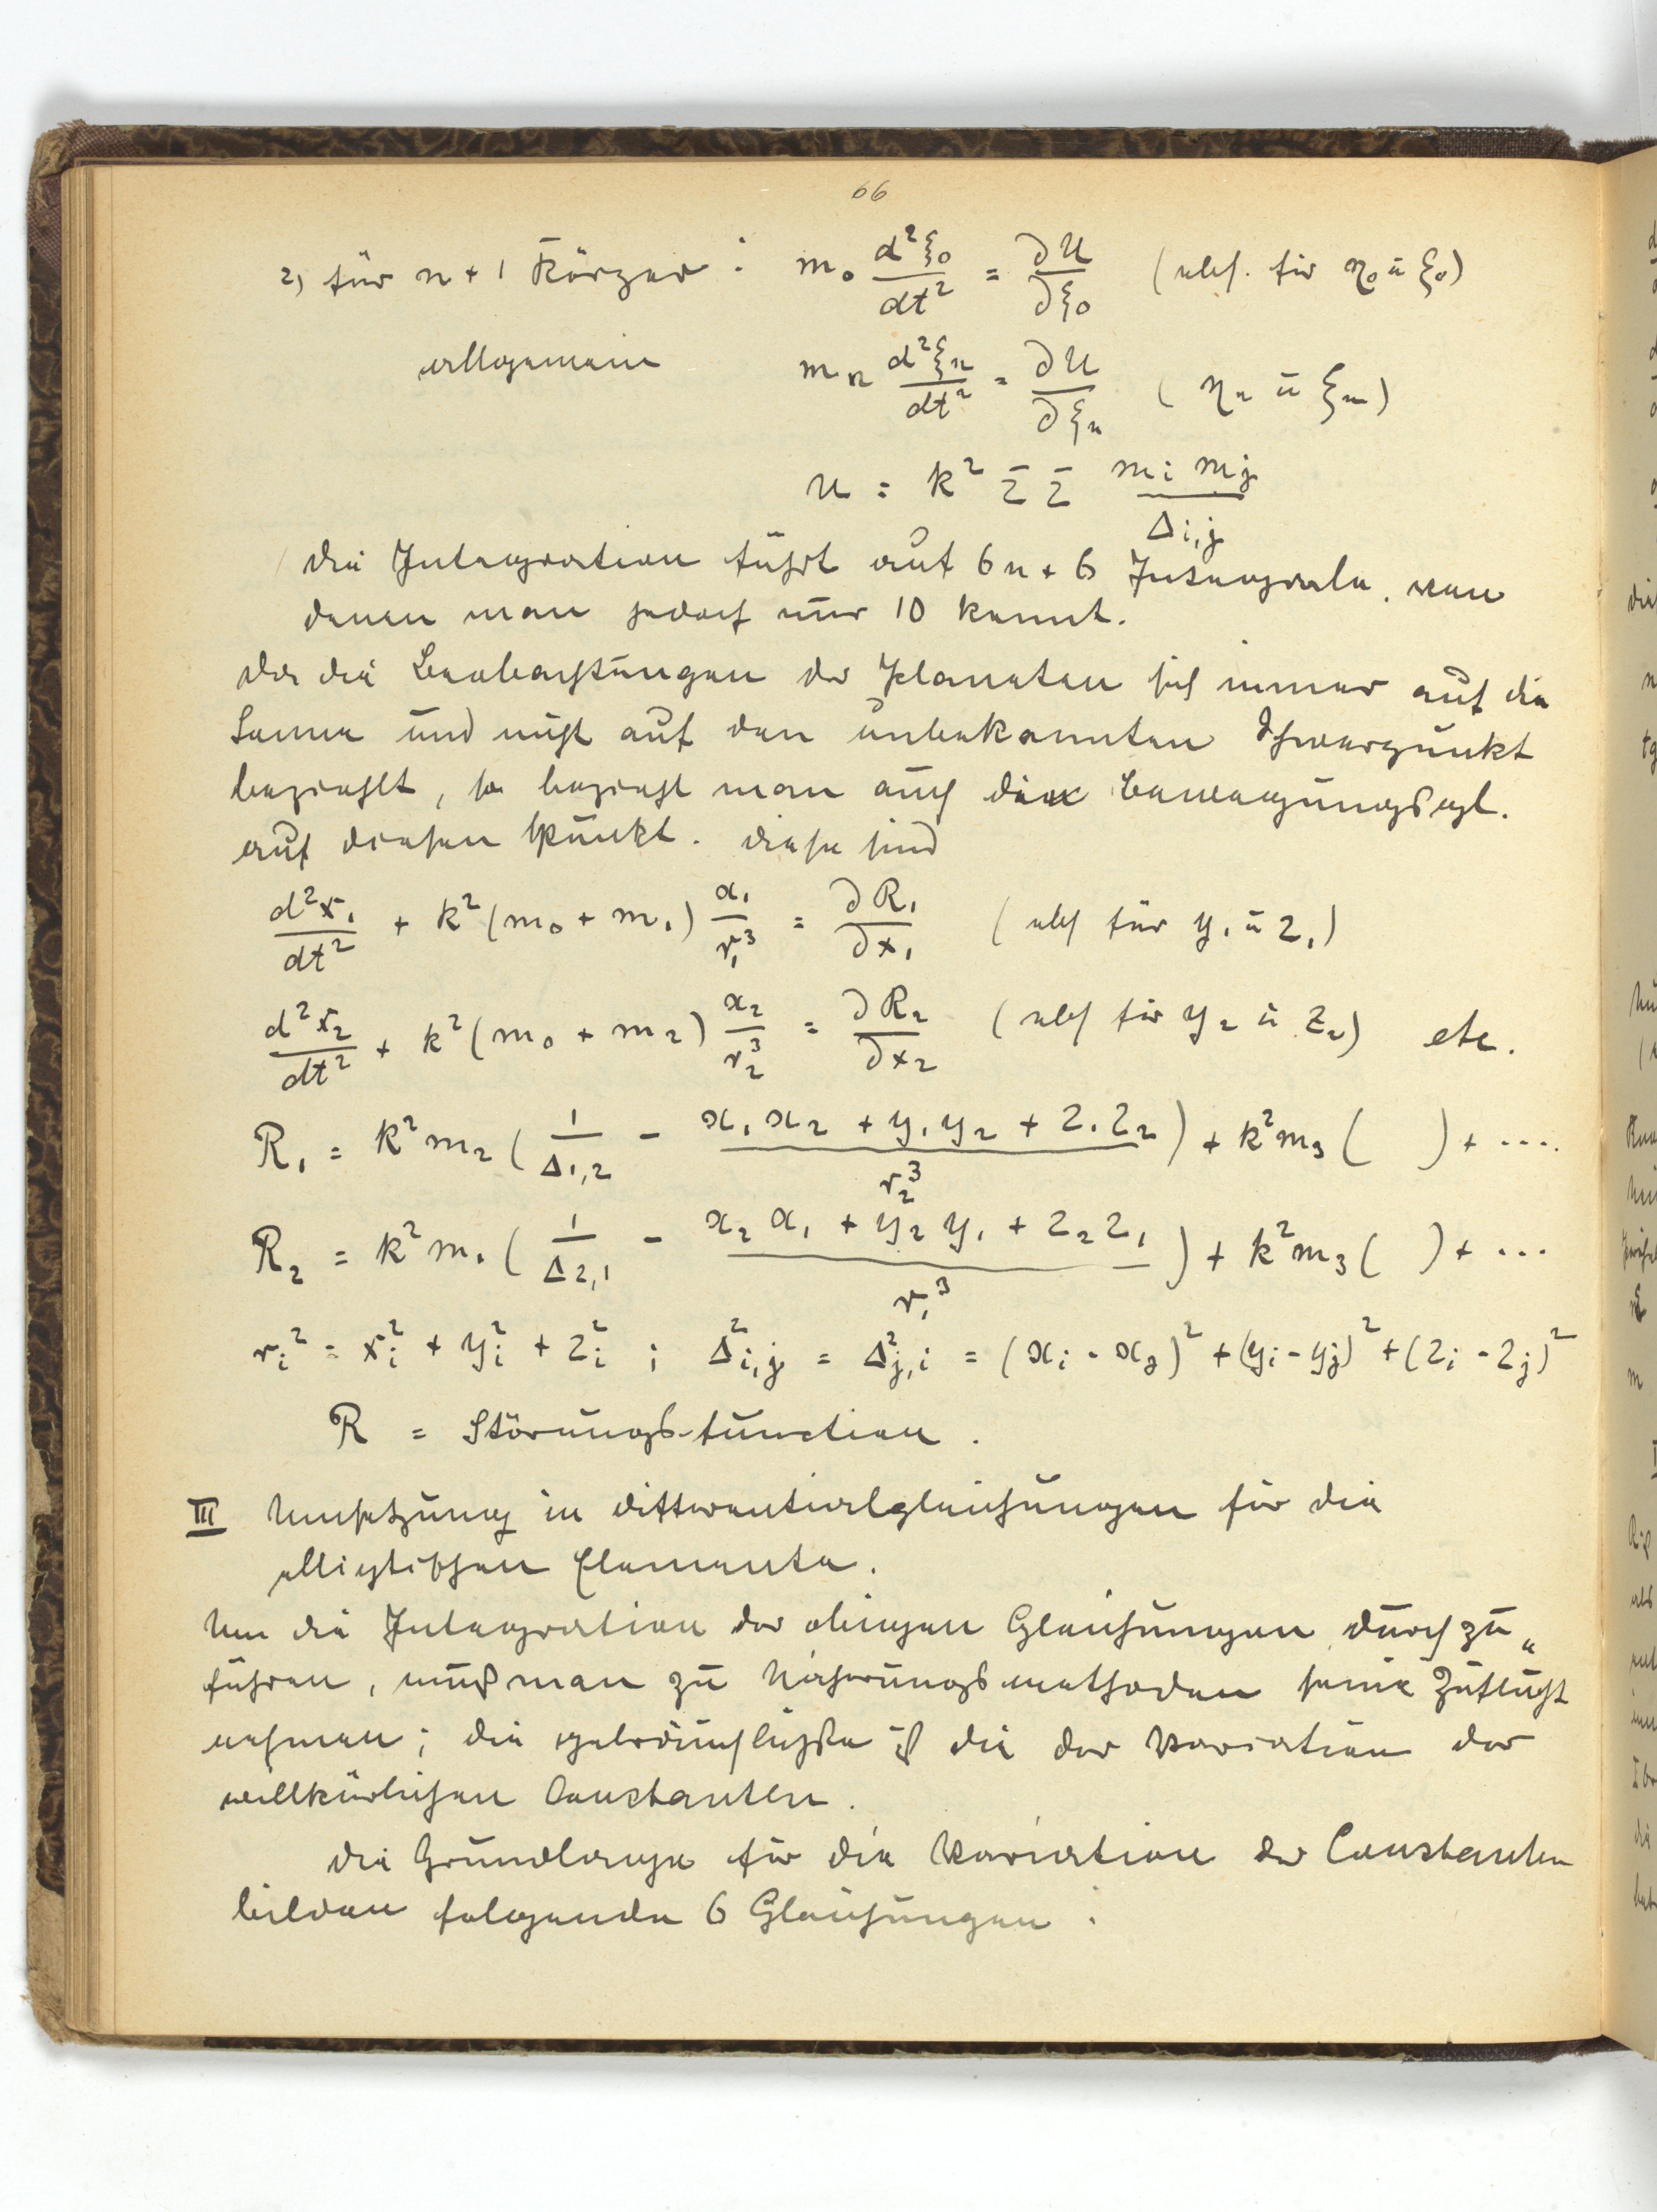 66
2) für n + 1 Körper : m₀ d²ξ₀/dt² = ∂U/∂ξ₀ (ebs. für η₀ u ξ₀)
allgemein mₙ d²ξₙ/dt² = ∂U/∂ξₙ ( ηₙ u ξₙ)
U = k² Σ Σ mᵢ mⱼ / Δᵢ,ⱼ
Die Integration führt auf 6n + 6 Integrale, von
denen man jedoch nur 10 kennt.
Da die Beobachtungen der Planeten sich immer auf die
Sonne und nicht auf den unbekannten Schwerpunkt
bezieht, so bezieht man auch die Bewegungsgl.
auf diesen Punkt. Diese sind
d²x₁/dt² + k² (m₀ + m₁) x₁/r₁³ = ∂R₁/∂x₁ (ebs für y₁ u z₁)
d²x₂/dt² + k² (m₀ + m₂) x₂/r₂³ = ∂R₂/∂x₂ (ebs für y₂ u z₂) etc.
R₁ = k² m₂ ( 1/Δ₁,₂ - (x₁ x₂ + y₁ y₂ + z₁ z₂)/r₂³ ) + k² m₃ ( ) + ....
R₂ = k² m₁ ( 1/Δ₂,₁ - (x₂ x₁ + y₂ y₁ + z₂ z₁)/r₁³ ) + k² m₃ ( ) + ...
rᵢ² = xᵢ² + yᵢ² + zᵢ² ; Δ²ᵢ,ⱼ = Δ²ⱼ,ᵢ = (xᵢ - xⱼ)² + (yᵢ - yⱼ)² + (zᵢ - zⱼ)²
R = Störungsfunction.
III Umsetzung in Differentialgleichungen für die
elliptischen Elemente.
Um die Integration der obigen Gleichungen durchzu„
führen, muß man zu Näherungsmethoden seine Zuflucht
nehmen; die gebräuchlichste ist die der Variation der
willkürlichen Constanten.
Die Grundlage für die Variation der Constanten
bilden folgende 6 Gleichungen :